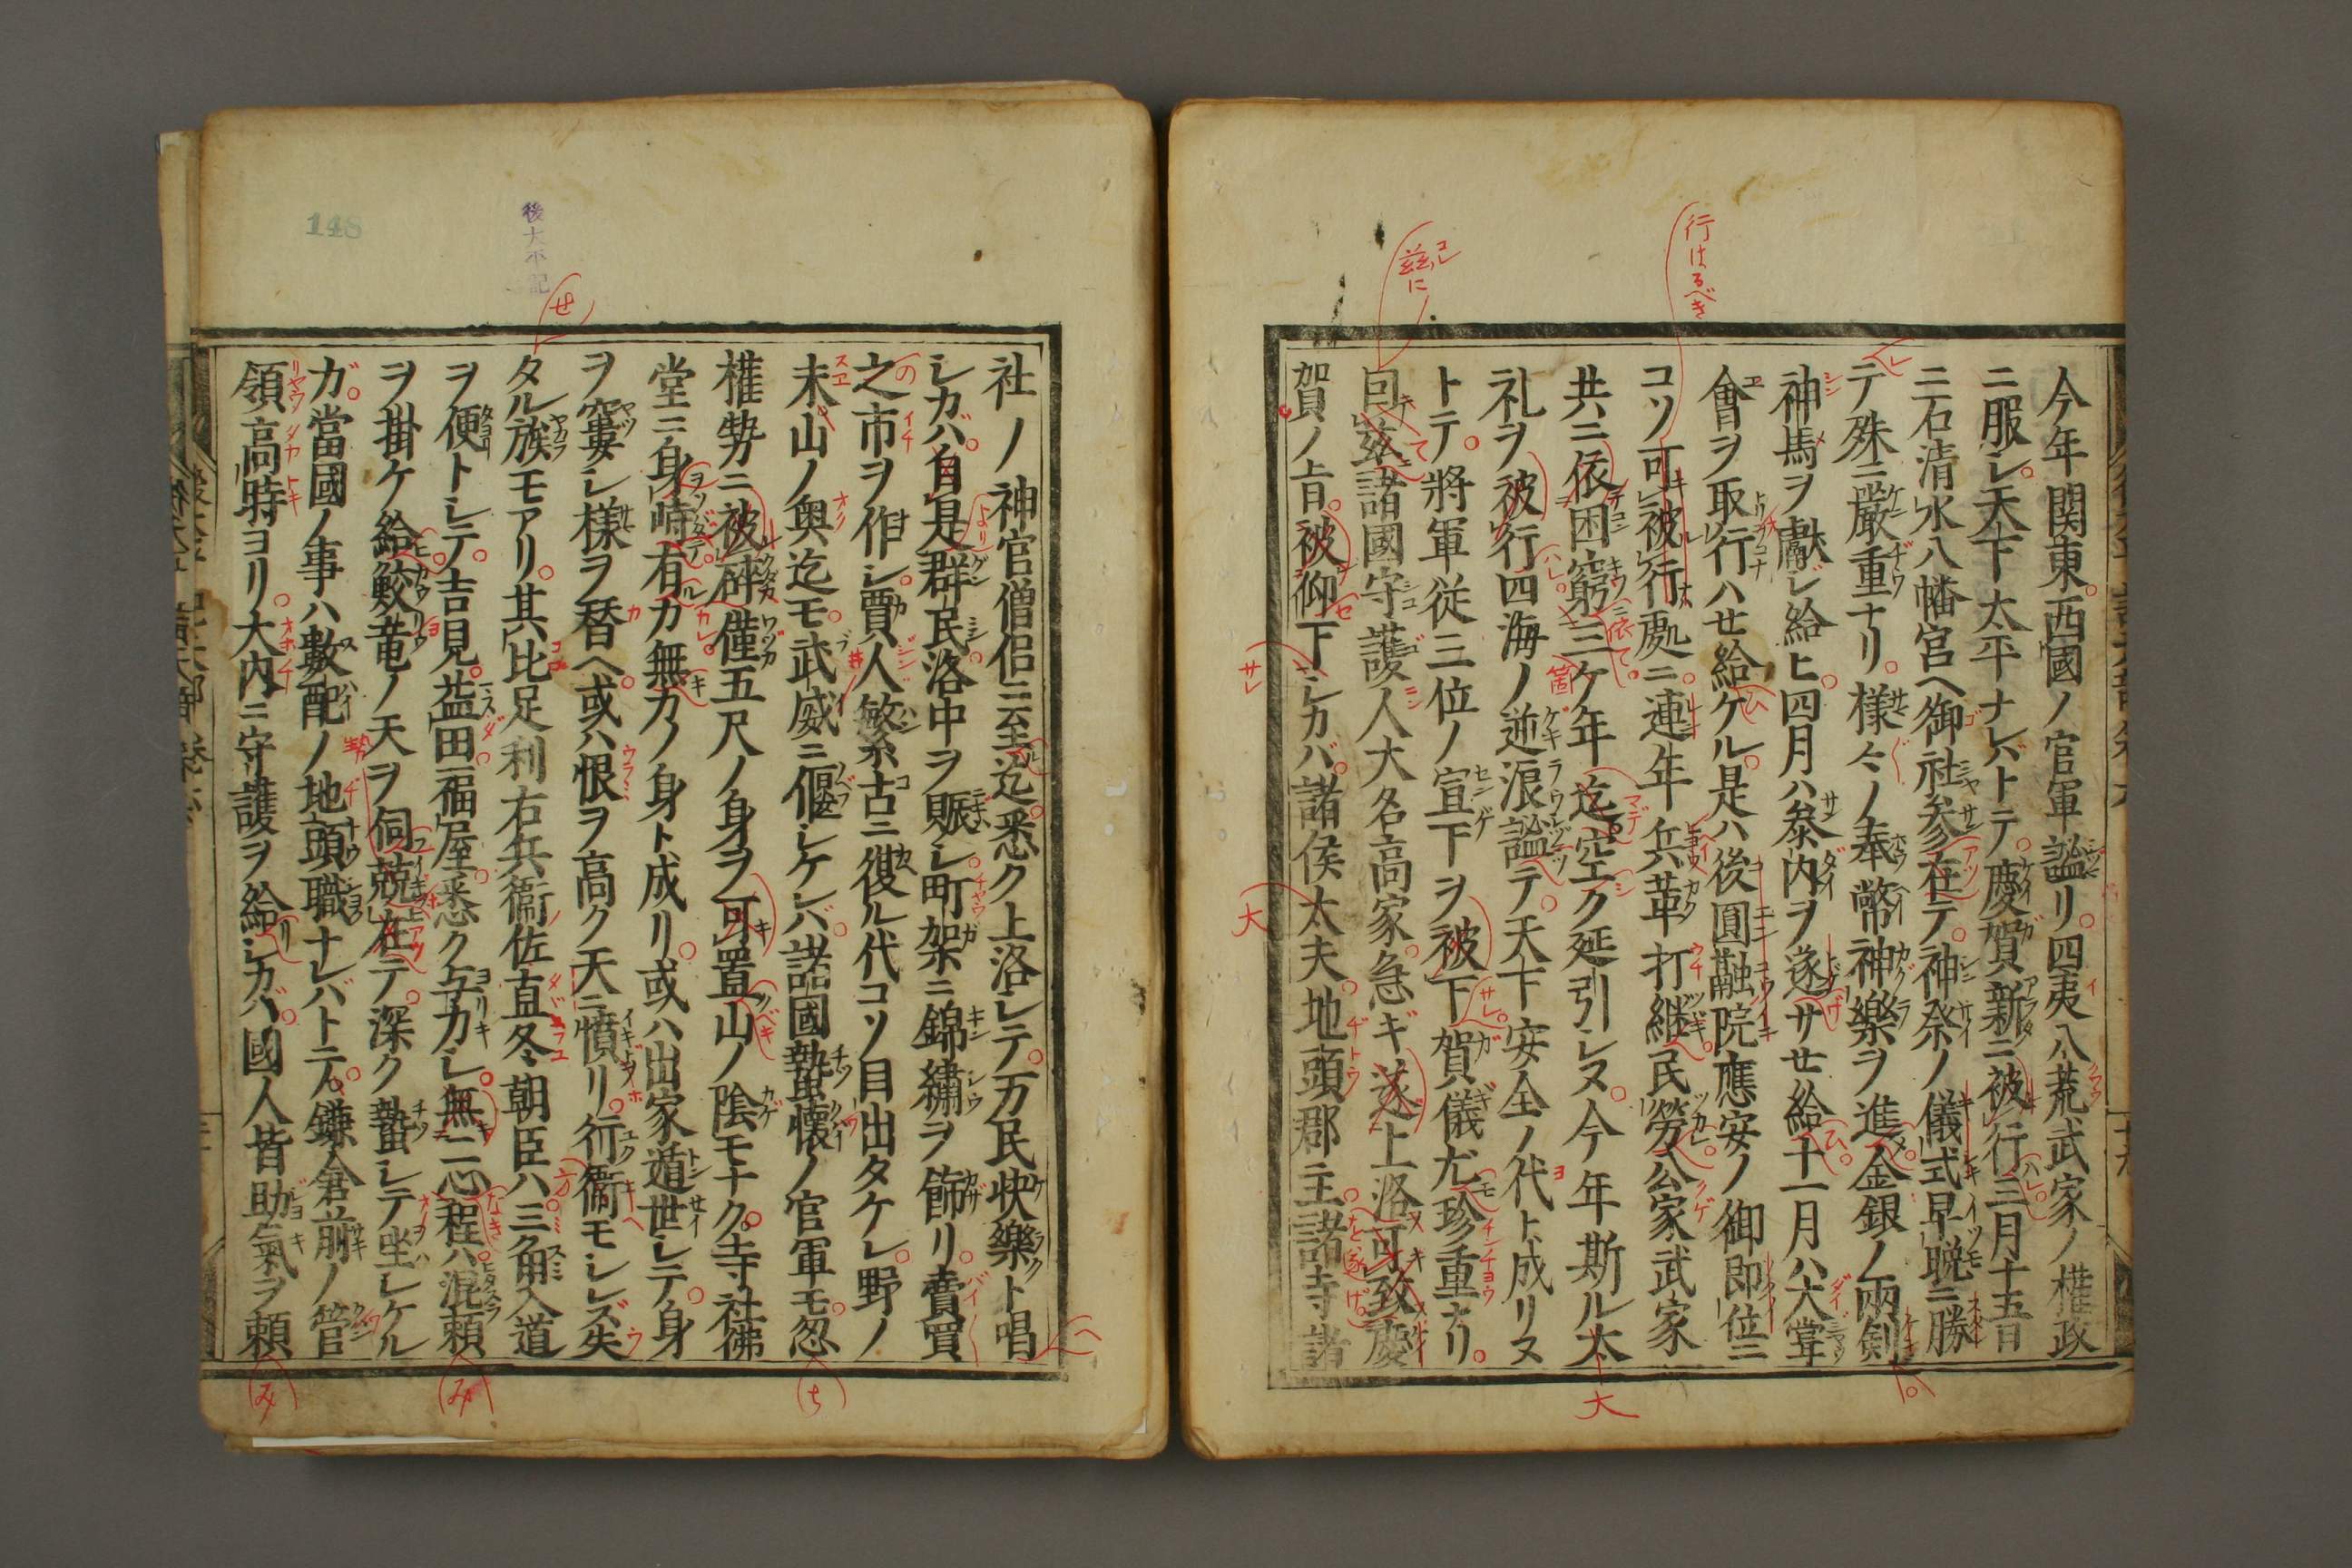 今年関東西國ノ官軍謐リ四夷八荒武家ノ権政
ニ服シ天下太平ナレバトテ慶賀新ニ被行三月十五日
ニ石清水八幡宮ヘ御社参在テ神祭ノ儀式早晩ニ勝
テ殊ニ嚴重ナリ様々ノ奉幣神樂ヲ進金銀ノ兩剣
神馬ヲ獻ジ給ヒ四月ハ参内ヲ遂サセ給十一月ハ大甞
會ヲ取行ハせ給ケル是ハ後圓融院應安ノ御即位ニ
コソ可被行處ニ連年兵革打継民勞公家武家
共ニ依困窮三ケ年迄空ク延引シヌ今年斯ル太
礼ヲ被行四海ノ逆浪謐テ天下安全ノ代ト成リヌ
トテ將軍従三位ノ宣下ヲ被下賀儀尤珍重ナリ
因茲諸國守護人大名高家急ギ遂上洛可致慶
賀ノ旨被仰下シカバ諸侯太夫地頭郡主諸寺諸
社ノ神官僧侶ニ至迄悉ク上洛シテ万民快樂ト唱
シカバ自是群民洛中ヲ賑シ町架ニ錦繡ヲ飾リ賣買
之市ヲ作シ賈人繁古ニ復ル代コソ目出タケレ野ノ
末山ノ奥迄モ武威ニ偃シケレバ諸國蟄懐ノ官軍モ忽
権勢ニ被砕僅五尺ノ身ヲ可置山ノ陰モナク寺社佛
堂ニ身峙有カ無カノ身ト成リ或ハ出家遁世シテ身
ヲ窶シ様ヲ替ヘ或ハ恨ヲ高ク天ニ憤リ行衞モシレズ失
タル族モアリ其比足利右兵衞佐直冬朝臣ハ三角入道
ヲ便トシテ吉見益田福屋悉ク与力シ無二心程ハ混頼
ヲ掛ケ給鮫竜ノ天ヲ伺競在テ深ク蟄シテ坐シケル
ガ當國ノ事ハ數配ノ地頭職ナレバトテ鎌倉前ノ管
領高時ヨリ大内ニ守護ヲ給シカバ國人皆助氣ヲ頼
後太平記
148
行はるべき
茲に